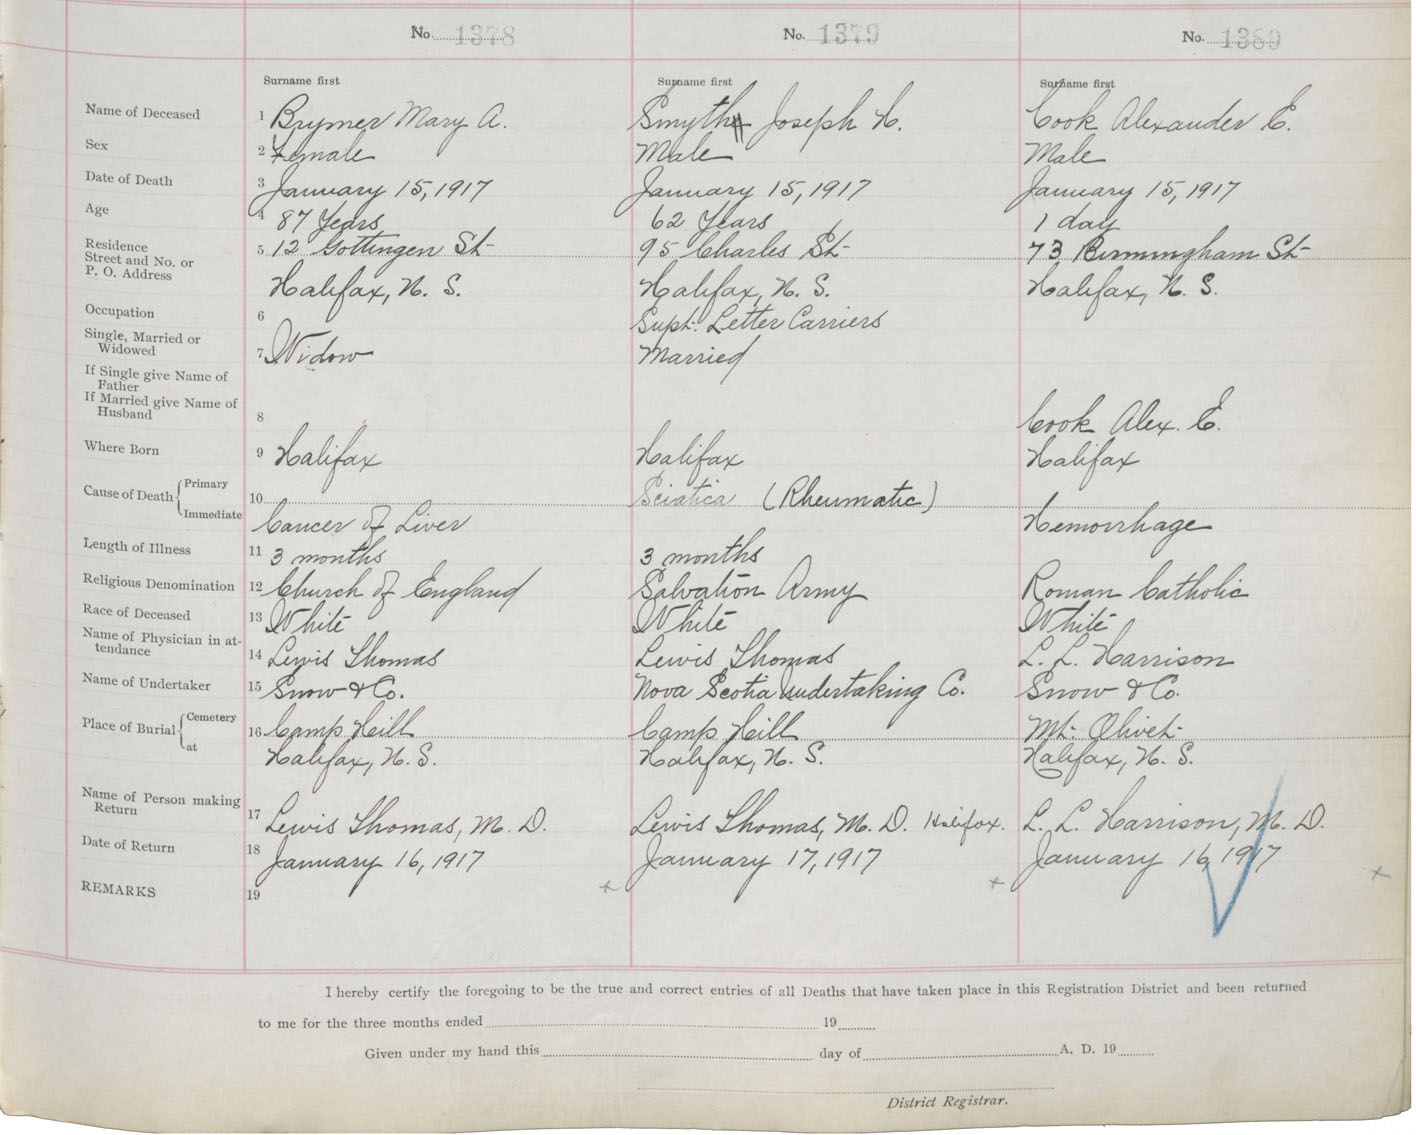 No. 1378 No. 1379 No. 1380
Surname first Surname first Surname first
Name of Deceased 1 Brymer Mary A. Smyth Joseph H. Cook Alexander E.
Sex 2 Female Male Male
Date of Death 3 January 15, 1917 January 15, 1917 January 15, 1917
Age 4 87 Years 62 Years 1 day
Residence
Street and No. or 5 12 Gottingen St 95 Charles St 73 Birmingham St
P. O. Address Halifax, N. S. Halifax, N. S. Halifax, N. S.
Occupation 6 Supt. Letter Carriers
Single, Married or
Widowed 7 Widow Married
If Single give Name of
Father
If Married give Name of
Husband 8 Cook Alex. E.
Where Born 9 Halifax Halifax Halifax
Cause of Death Primary 10 Sciatica (Rheumatic)
Immediate Cancer of Liver Hemorrhage
Length of Illness 11 3 months 3 months
Religious Denomination 12 Church of England Salvation Army Roman Catholic
Race of Deceased 13 White White White
Name of Physician in at-
tendance 14 Lewis Thomas Lewis Thomas L. L. Harrison
Name of Undertaker 15 Snow & Co. Nova Scotia Undertaking Co. Snow & Co.
Place of Burial Cemetery 16 Camp Hill Camp Hill Mt. Olivet
at Halifax, N. S. Halifax, N. S. Halifax, N. S.
Name of Person making
Return 17 Lewis Thomas, M. D. Lewis Thomas, M. D. Halifax. L. L. Harrison, M. D.
Date of Return 18 January 16, 1917 January 17, 1917 January 16, 1917
REMARKS 19
I hereby certify the foregoing to be the true and correct entries of all Deaths that have taken place in this Registration District and been returned
to me for the three months ended 19
Given under my hand this day of A. D. 19
District Registrar.